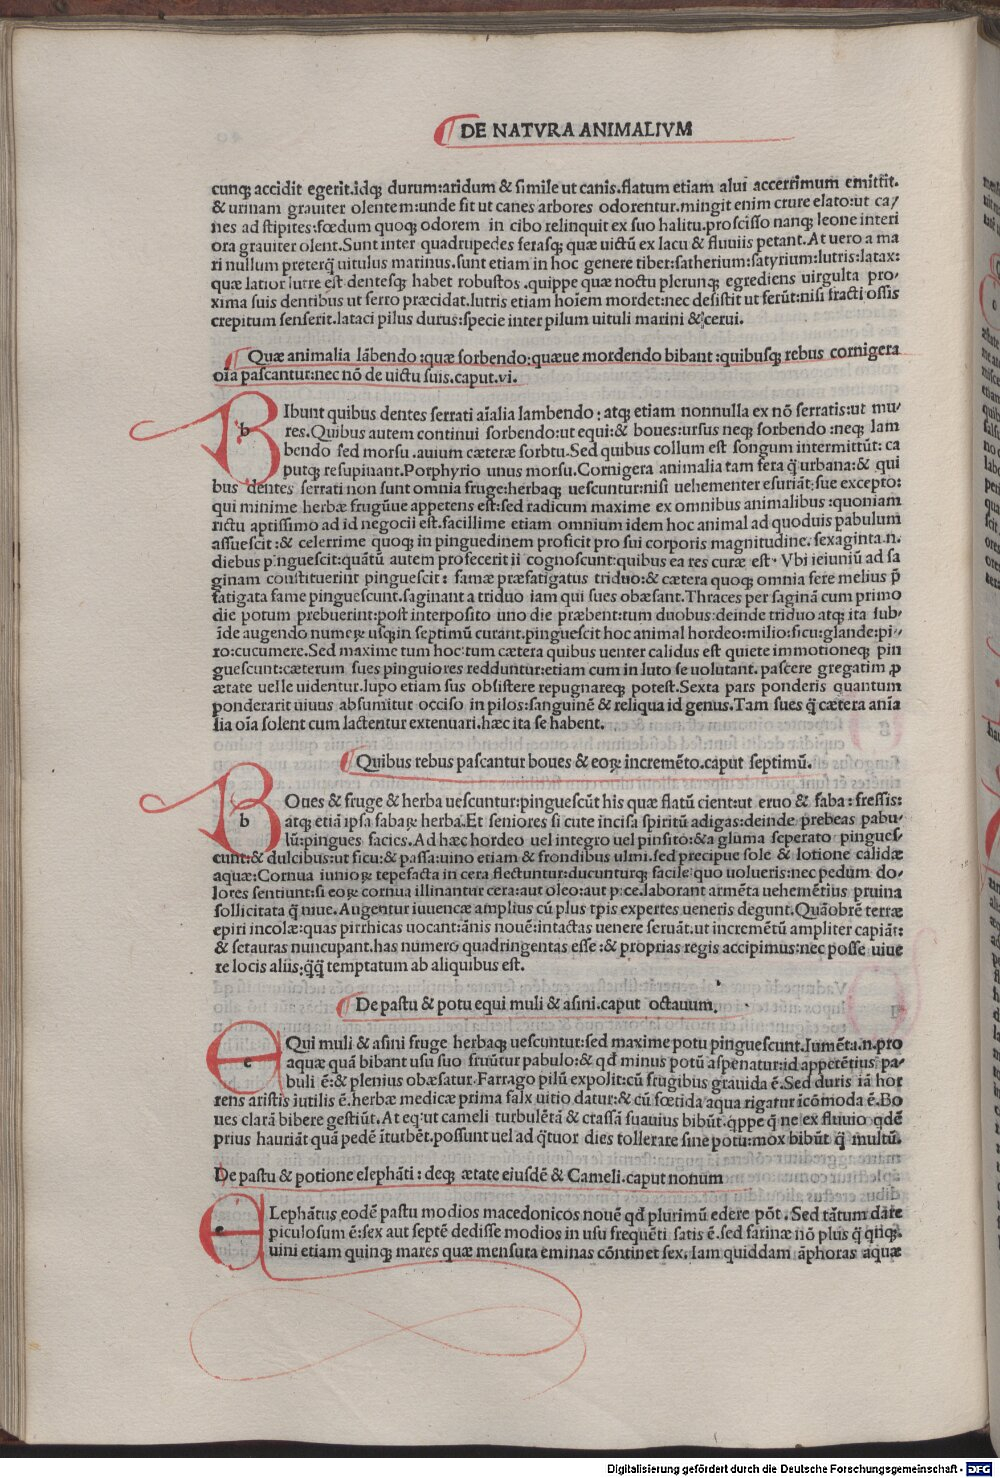 DE NATVRA ANIMALIVM
cunqꝫ accidit egerit.idqꝫ durum:aridum & simile ut canis.flatum etiam alui accerrimum emittit.
& urinam grauiter olentem:unde fit ut canes arbores odorentur.mingit enim crure elato:ut ca/
nes ad stipites:fœdum quoqꝫ odorem in cibo relinquit ex suo halitu.proscisso nanqꝫ leone interi
ora grauiter olent.Sunt inter quadrupedes ferasqꝫ quæ uictū ex lacu & fluuiis petant.At uero a ma
ri nullum preterq̄ uitulus marinus.sunt etiam in hoc genere tiber:satherium:satyrium:lutris:latax:
quæ latior lutre est dentesqꝫ habet robustos.quippe quæ noctu plerunqꝫ egrediens uirgulta pro/
xima suis dentibus ut ferro præcidat.lutris etiam hoīem mordet:nec desistit ut ferūt:nisi fracti ossis
crepitum senserit.lataci pilus durus:specie inter pilum uituli marini & cerui.
Quæ animalia lābendo:quæ sorbendo:quæue mordendo bibant:quibusqꝫ rebus cornigera
oīa pascantur:nec nō de uictu suis.caput.vi.
b Ibunt quibus dentes serrati aīalia lambendo:atqꝫ etiam nonnulla ex nō serratis:ut mu/
res.Quibus autem continui sorbendo:ut equi:& boues:ursus neqꝫ sorbendo:neqꝫ lam
bendo sed morsu.auium cæteræ sorbtu.Sed quibus collum est songum intermittūt:ca
putqꝫ resupinant.Porphyrio unus morsu.Cornigera animalia tam fera q̄ urbana:& qui
bus dentes serrati non sunt omnia fruge:herbaqꝫ uescuntur:nisi uehementer esuriāt:sue excepto:
qui minime herbæ frugūue appetens est:sed radicum maxime ex omnibus animalibus:quoniam
rictu aptissimo ad id negocii est.facillime etiam omnium idem hoc animal ad quoduis pabulum
assuescit:& celerrime quoqꝫ in pinguedinem proficit pro sui corporis magnitudine.sexaginta.n.
diebus pinguescit:quātū autem profecerit ii cognoscunt:quibus ea res curæ est.Vbi ieiuniū ad sa
ginam constituerint pinguescit:famæ præfatigatus triduo:& cætera quoqꝫ omnia fere melius p̄
fatigata fame pinguescunt.saginant a triduo iam qui sues obæsant.Thraces per saginā cum primo
die potum prebuerint:post interposito uno die præbent:tum duobus:deinde triduo atqꝫ ita sub/
īde augendo numeꝝ usqꝫin septimū curant.pinguescit hoc animal hordeo:milio:ficu:glande:pi/
ro:cucumere.Sed maxime tum hoc:tum cætera quibus uenter calidus est quiete immotioneqꝫ pin
guescunt:cæterum sues pinguiores redduntur:etiam cum in luto se uolutant.pascere gregatim ꝓ
ætate uelle uidentur.lupo etiam sus obsistere repugnareqꝫ potest.Sexta pars ponderis quantum
ponderarit uiuus absumitut occiso in pilos:sanguinē & reliqua id genus.Tam sues q̄ cætera anīa
lia oīa solent cum lactentur extenuari.hæc ita se habent.
Quibus rebus pascantur boues & eoꝝ incremēto.caput septimū.
b Oues & fruge & herba uescuntur:pinguescūt his quæ flatū cient:ut eruo & faba:fressis:
atqꝫ etiā ipsa fabaꝝ herba.Et seniores si cute incisa spiritū adigas:deinde prebeas pabu-
lū:pingues facies.Ad hæc hordeo uel integro uel pinsito:&a gluma seperato pingues-
cunt:& dulcibus:ut ficu:& passa:uino etiam & frondibus ulmi.sed precipue sole & lotione calidæ
aquæ:Cornua iunioꝝ tepefacta in cera flectuntur:ducunturqꝫ facile quo uolueris:nec pedum do-
lores sentiunt:si eoꝝ cornua illinantur cera:aut oleo:aut pice.laborant armēta uehemētius pruina
sollicitata q̄ niue.Augentur iuuencæ amplius cū plus tp̄is expertes ueneris degunt.Quāobrē terræ
epiri incolæ:quas pirrhicas uocant:ānis nouē:intactas uenere seruāt.ut incremētū ampliter capiāt:
& setauras nuncupant.has numero quadringentas esse:& proprias regis accipimus:nec posse uiue
re locis aliis:q̄q̄ temptatum ab aliquibus est.
De pastu & potu equi muli & asini.caput octauum.
e Qui muli & asini fruge herbaqꝫ uescuntur:sed maxime potu pinguescunt.Iumēta.n.pro
aquæ quā bibant usu suo fruūtur pabulo:& qd̄ minus potū aspenatur:id appetētius pa-
buli ē:& plenius obæsatur.Farrago pilū expolit:cū frugibus grauida ē.Sed duris iā hor
rens aristis īutilis ē.herbæ medicæ prima falx uitio datur:& cū fœtida aqua rigatur īcōmoda ē.Bo
ues clarā bibere gestiūt.At eq:ut cameli turbulētā & crassā suauius bibūt.q̄ppe q̄ ne ex fluuio qdē
prius hauriāt quā pedē īturbēt.possunt uel ad q̄tuor dies tollerare sine potu:mox bibūt q̄ multū.
De pastu & potione elephāti:deqꝫ ætate eiusdē & Cameli.caput nonum
e Lephātus eodē pastu modios macedonicos nouē qd̄ plurimū edere pōt.Sed tātum dare
piculosum ē:sex aut septē dedisse modios in usu frequēti satis ē.sed farinæ nō plus q̄ qnqꝫ.
uini etiam quinqꝫ mares quæ mensura eminas cōntinet sex.Iam quiddam āphoras aquæ
Digitalisierung gefördert durch die Deutsche Forschungsgemeinschaft - DFG